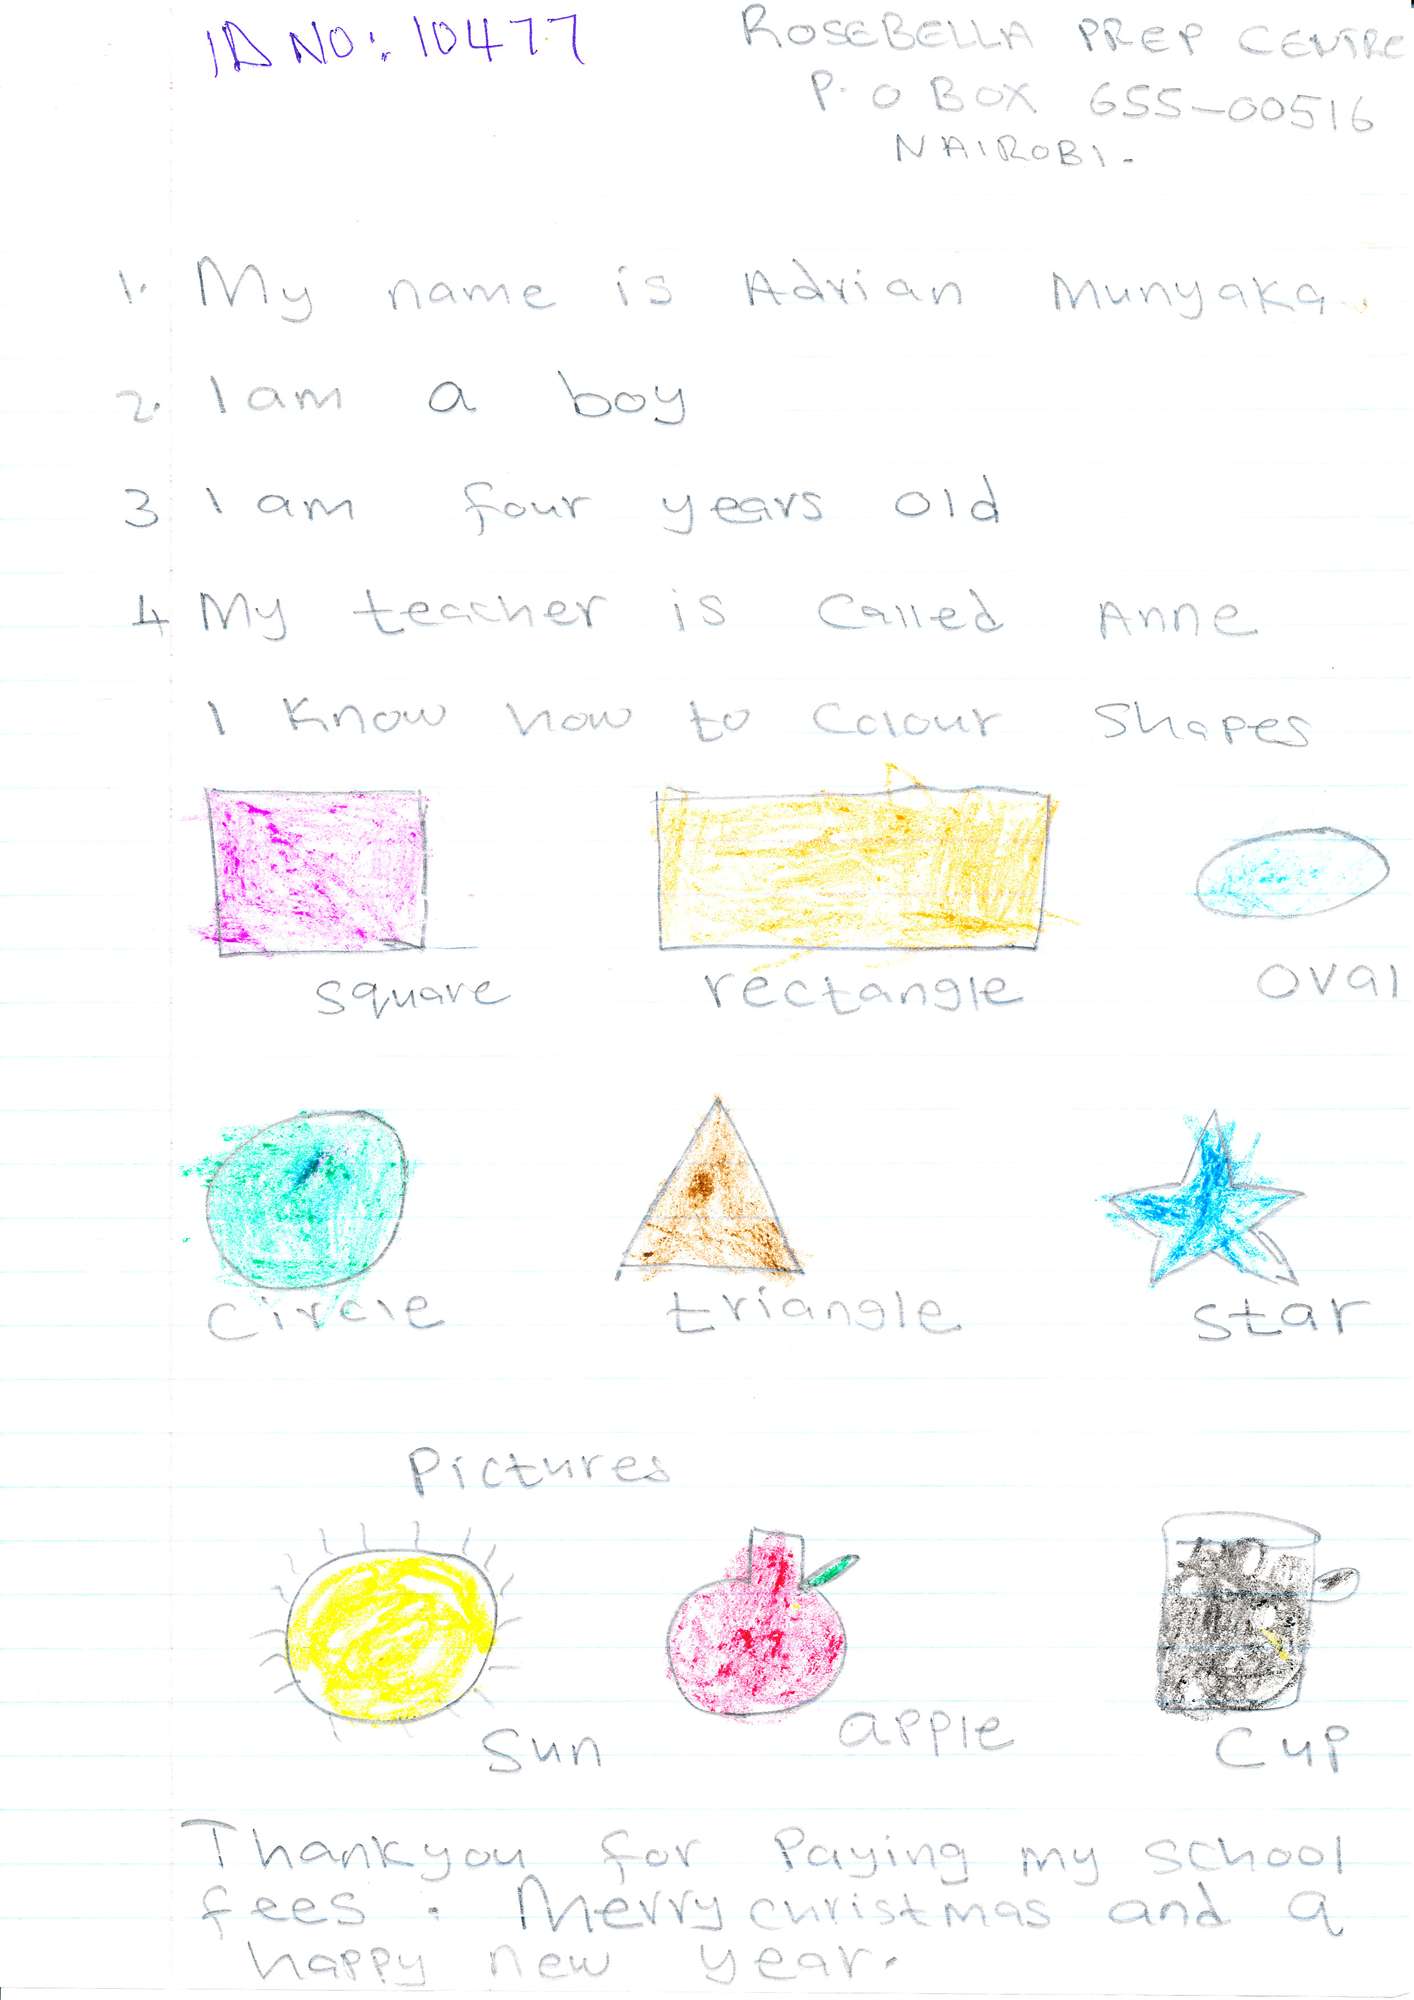 ID NO: 10477
ROSEBELLA PREP CENTRE
P. O BOX 655-00516
NAIROBI.
1. My name is Adrian Munyaka.
2. I am a boy
3 I am four years old
4 My teacher is Called Anne
I Know how to Colour Shapes
square rectangle oval
Circle triangle star
Pictures
Sun apple Cup
Thankyou for Paying my school
fees. Merry christmas and a
happy new year.